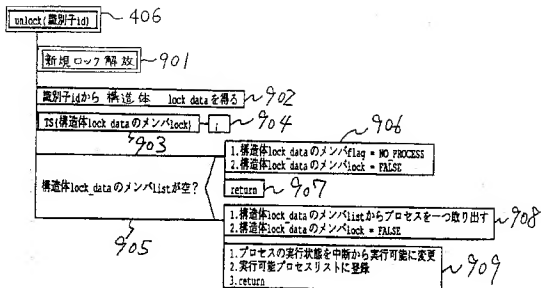 unlock(識別子id) 406
新規ロック解放 901
識別子idから 構造体 lock_dataを得る 902
TS(構造体lock_dataのメンバlock) ; 904
903
906
1.構造体lock_dataのメンバflag = NO_PROCESS
2.構造体lock_dataのメンバlock = FALSE
構造体lock_dataのメンバlistが空?
return 907
905
1.構造体lock_dataのメンバlistからプロセスを一つ取り出す 908
2.構造体lock_dataのメンバlock = FALSE
1.プロセスの実行状態を中断から実行可能に変更
2.実行可能プロセスリストに登録 909
3.return